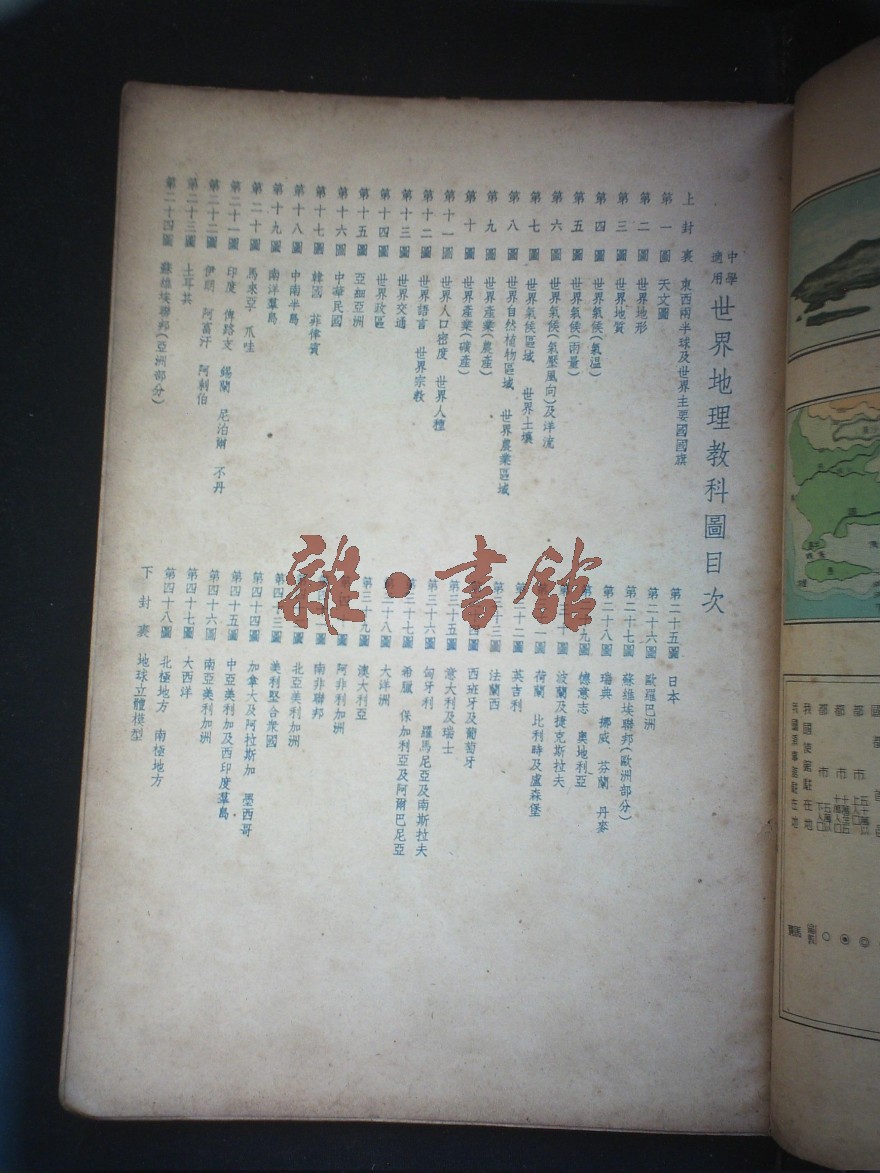 中學適用 世界地理教科圖目次
上封裏 東西兩半球及世界主要國國旗
第一圖 天文圖
第二圖 世界地形
第三圖 世界地質
第四圖 世界氣候(氣溫)
第五圖 世界氣候(雨量)
第六圖 世界氣候(氣壓風向)及洋流
第七圖 世界氣候區域 世界土壤
第八圖 世界自然植物區域 世界農業區域
第九圖 世界產業(農產)
第十圖 世界產業(礦產)
第十一圖 世界人口密度 世界人種
第十二圖 世界語言 世界宗教
第十三圖 世界交通
第十四圖 世界政區
第十五圖 亞細亞洲
第十六圖 中華民國
第十七圖 韓國 菲律賓
第十八圖 中南半島
第十九圖 南洋羣島
第二十圖 馬來亞 爪哇
第二十一圖 印度 俾路支 錫蘭 尼泊爾 不丹
第二十二圖 伊朗 阿富汗 阿剌伯
第二十三圖 土耳其
第二十四圖 蘇維埃聯邦(亞洲部分)
第二十五圖 日本
第二十六圖 歐羅巴洲
第二十七圖 蘇維埃聯邦(歐洲部分)
第二十八圖 瑞典 挪威 芬蘭 丹麥
九圖 德意志 奧地利亞
圖 波蘭及捷克斯拉夫
一圖 荷蘭 比利時及盧森堡
第三十二圖 英吉利
十三圖 法蘭西
四圖 西班牙及葡萄牙
第三十五圖 意大利及瑞士
第三十六圖 匈牙利 羅馬尼亞及南斯拉夫
十七圖 希臘 保加利亞及阿爾巴尼亞
十八圖 大洋洲
第三十九圖 澳大利亞
圖 阿非利加洲
圖 南非聯邦
圖 北亞美利加洲
第四十三圖 美利堅合衆國
第四十四圖 加拿大及阿拉斯加 墨西哥
第四十五圖 中亞美利加及西印度羣島
第四十六圖 南亞美利加洲
第四十七圖 大西洋
第四十八圖 北極地方 南極地方
下封裏 地球立體模型
雜·書館
都市
都市
都市
我國使館駐在地
我國領事館駐在地